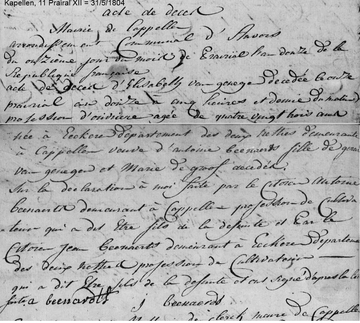 Kapellen, 11 Prairal XII = 31/5/1804
acte de deces
Mairie de Cappelle
arrondissement Communal d'Anvers
du onzieme jour du mois de Prairial l'an douze de la
Republique française
acte de deces d'Elisabeth van decedée le onze
prairial an douze a cinq heures et demie du matin
profession d'ouvriere agée de quatre vingt trois ans
née à Eeckere département des deux nethes demeurant
à Cappellen veuve d'antoine bernaerts fille de
van et Marie de
Sur la déclaration à moi faite par le Citoien Antoine
bernaerts demeurant à Cappellen profession de
qui a dit etre fils de la defunte et par le
Citoien jean bernaerts demeurant à Eeckere departement
des deux nethes profession de Cultivateur
qui a dit etre fils de la defunte et ont signé
a bernaerts j bernaerds
de clerck maire de Cappelle